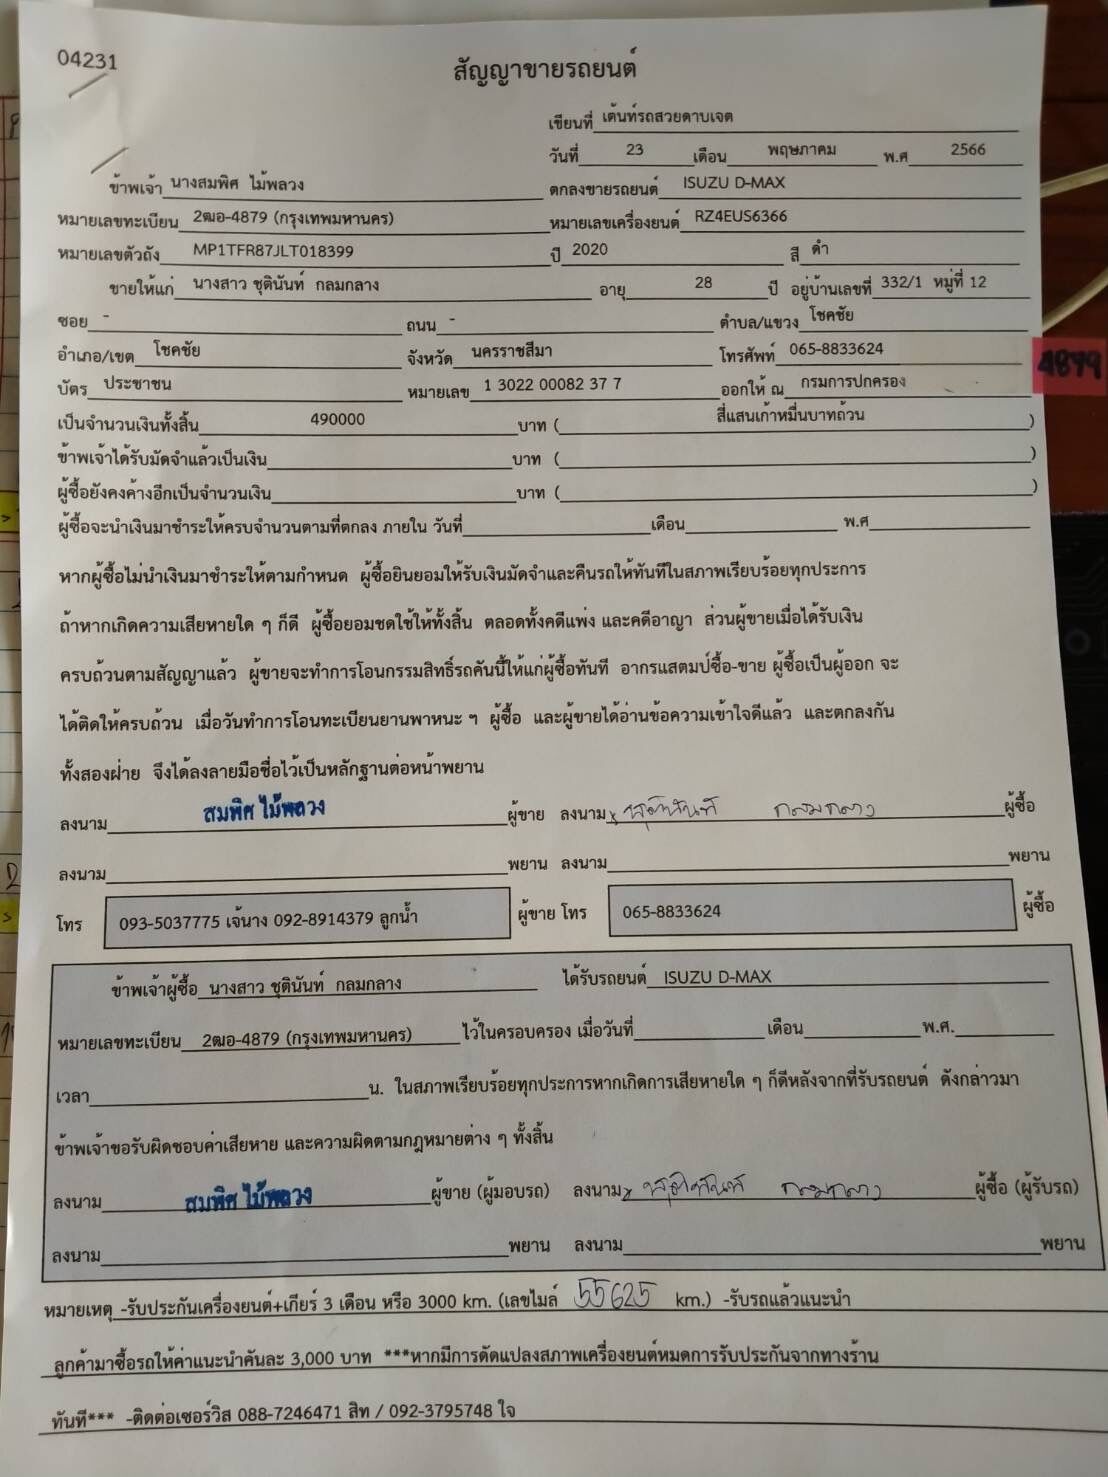 04231
สัญญาขายรถยนต์
เขียนที่ เต้นท์รถสวยดาบเจต
วันที่ 23 เดือน พฤษภาคม พ.ศ 2566
ข้าพเจ้า นางสมพิศ ไม้พลวง ตกลงขายรถยนต์ ISUZU D-MAX
หมายเลขทะเบียน 2ฒอ-4879 (กรุงเทพมหานคร) หมายเลขเครื่องยนต์ RZ4EUS6366
หมายเลขตัวถัง MP1TFR87JLT018399 ปี 2020 สี ดำ
ขายให้แก่ นางสาว ชุตินันท์ กลมกลาง อายุ 28 ปี อยู่บ้านเลขที่ 332/1 หมู่ที่ 12
ซอย - ถนน - ตำบล/แขวง โชคชัย
อำเภอ/เขต โชคชัย จังหวัด นครราชสีมา โทรศัพท์ 065-8833624
4879
บัตร ประชาชน หมายเลข 1 3022 00082 37 7 ออกให้ ณ กรมการปกครอง
เป็นจำนวนเงินทั้งสิ้น 490000 บาท ( สี่แสนเก้าหมื่นบาทถ้วน )
ข้าพเจ้าได้รับมัดจำแล้วเป็นเงิน บาท ( )
ผู้ซื้อยังคงค้างอีกเป็นจำนวนเงิน บาท ( )
ผู้ซื้อจะนำเงินมาชำระให้ครบจำนวนตามที่ตกลง ภายใน วันที่ เดือน พ.ศ
หากผู้ซื้อไม่นำเงินมาชำระให้ตามกำหนด ผู้ซื้อยินยอมให้รับเงินมัดจำและคืนรถให้ทันทีในสภาพเรียบร้อยทุกประการ
ถ้าหากเกิดความเสียหายใด ๆ ก็ดี ผู้ซื้อยอมชดใช้ให้ทั้งสิ้น ตลอดทั้งคดีแพ่ง และคดีอาญา ส่วนผู้ขายเมื่อได้รับเงิน
ครบถ้วนตามสัญญาแล้ว ผู้ขายจะทำการโอนกรรมสิทธิ์รถคันนี้ให้แก่ผู้ซื้อทันที อากรแสตมป์ซื้อ-ขาย ผู้ซื้อเป็นผู้ออก จะ
ได้ติดให้ครบถ้วน เมื่อวันทำการโอนทะเบียนยานพาหนะ ฯ ผู้ซื้อ และผู้ขายได้อ่านข้อความเข้าใจดีแล้ว และตกลงกัน
ทั้งสองฝ่าย จึงได้ลงลายมือชื่อไว้เป็นหลักฐานต่อหน้าพยาน
ลงนาม สมพิศ ไม้พลวง ผู้ขาย ลงนาม x ชุตินันท์ กลมกลาง ผู้ซื้อ
ลงนาม พยาน ลงนาม พยาน
โทร 093-5037775 เจ้นาง 092-8914379 ลูกน้ำ ผู้ขาย โทร 065-8833624 ผู้ซื้อ
ข้าพเจ้าผู้ซื้อ นางสาว ชุตินันท์ กลมกลาง ได้รับรถยนต์ ISUZU D-MAX
หมายเลขทะเบียน 2ฒอ-4879 (กรุงเทพมหานคร) ไว้ในครอบครอง เมื่อวันที่ เดือน พ.ศ.
เวลา น. ในสภาพเรียบร้อยทุกประการหากเกิดการเสียหายใด ๆ ก็ดีหลังจากที่รับรถยนต์ ดังกล่าวมา
ข้าพเจ้าขอรับผิดชอบค่าเสียหาย และความผิดตามกฎหมายต่าง ๆ ทั้งสิ้น
ลงนาม สมพิศ ไม้พลวง ผู้ขาย (ผู้มอบรถ) ลงนาม x ชุตินันท์ กลมกลาง ผู้ซื้อ (ผู้รับรถ)
ลงนาม พยาน ลงนาม พยาน
หมายเหตุ -รับประกันเครื่องยนต์+เกียร์ 3 เดือน หรือ 3000 km. (เลขไมล์ 55625 km.) -รับรถแล้วแนะนำ
ลูกค้ามาซื้อรถให้ค่าแนะนำคันละ 3,000 บาท ***หากมีการดัดแปลงสภาพเครื่องยนต์หมดการรับประกันจากทางร้าน
ทันที*** -ติดต่อเซอร์วิส 088-7246471 สิท / 092-3795748 ใจ